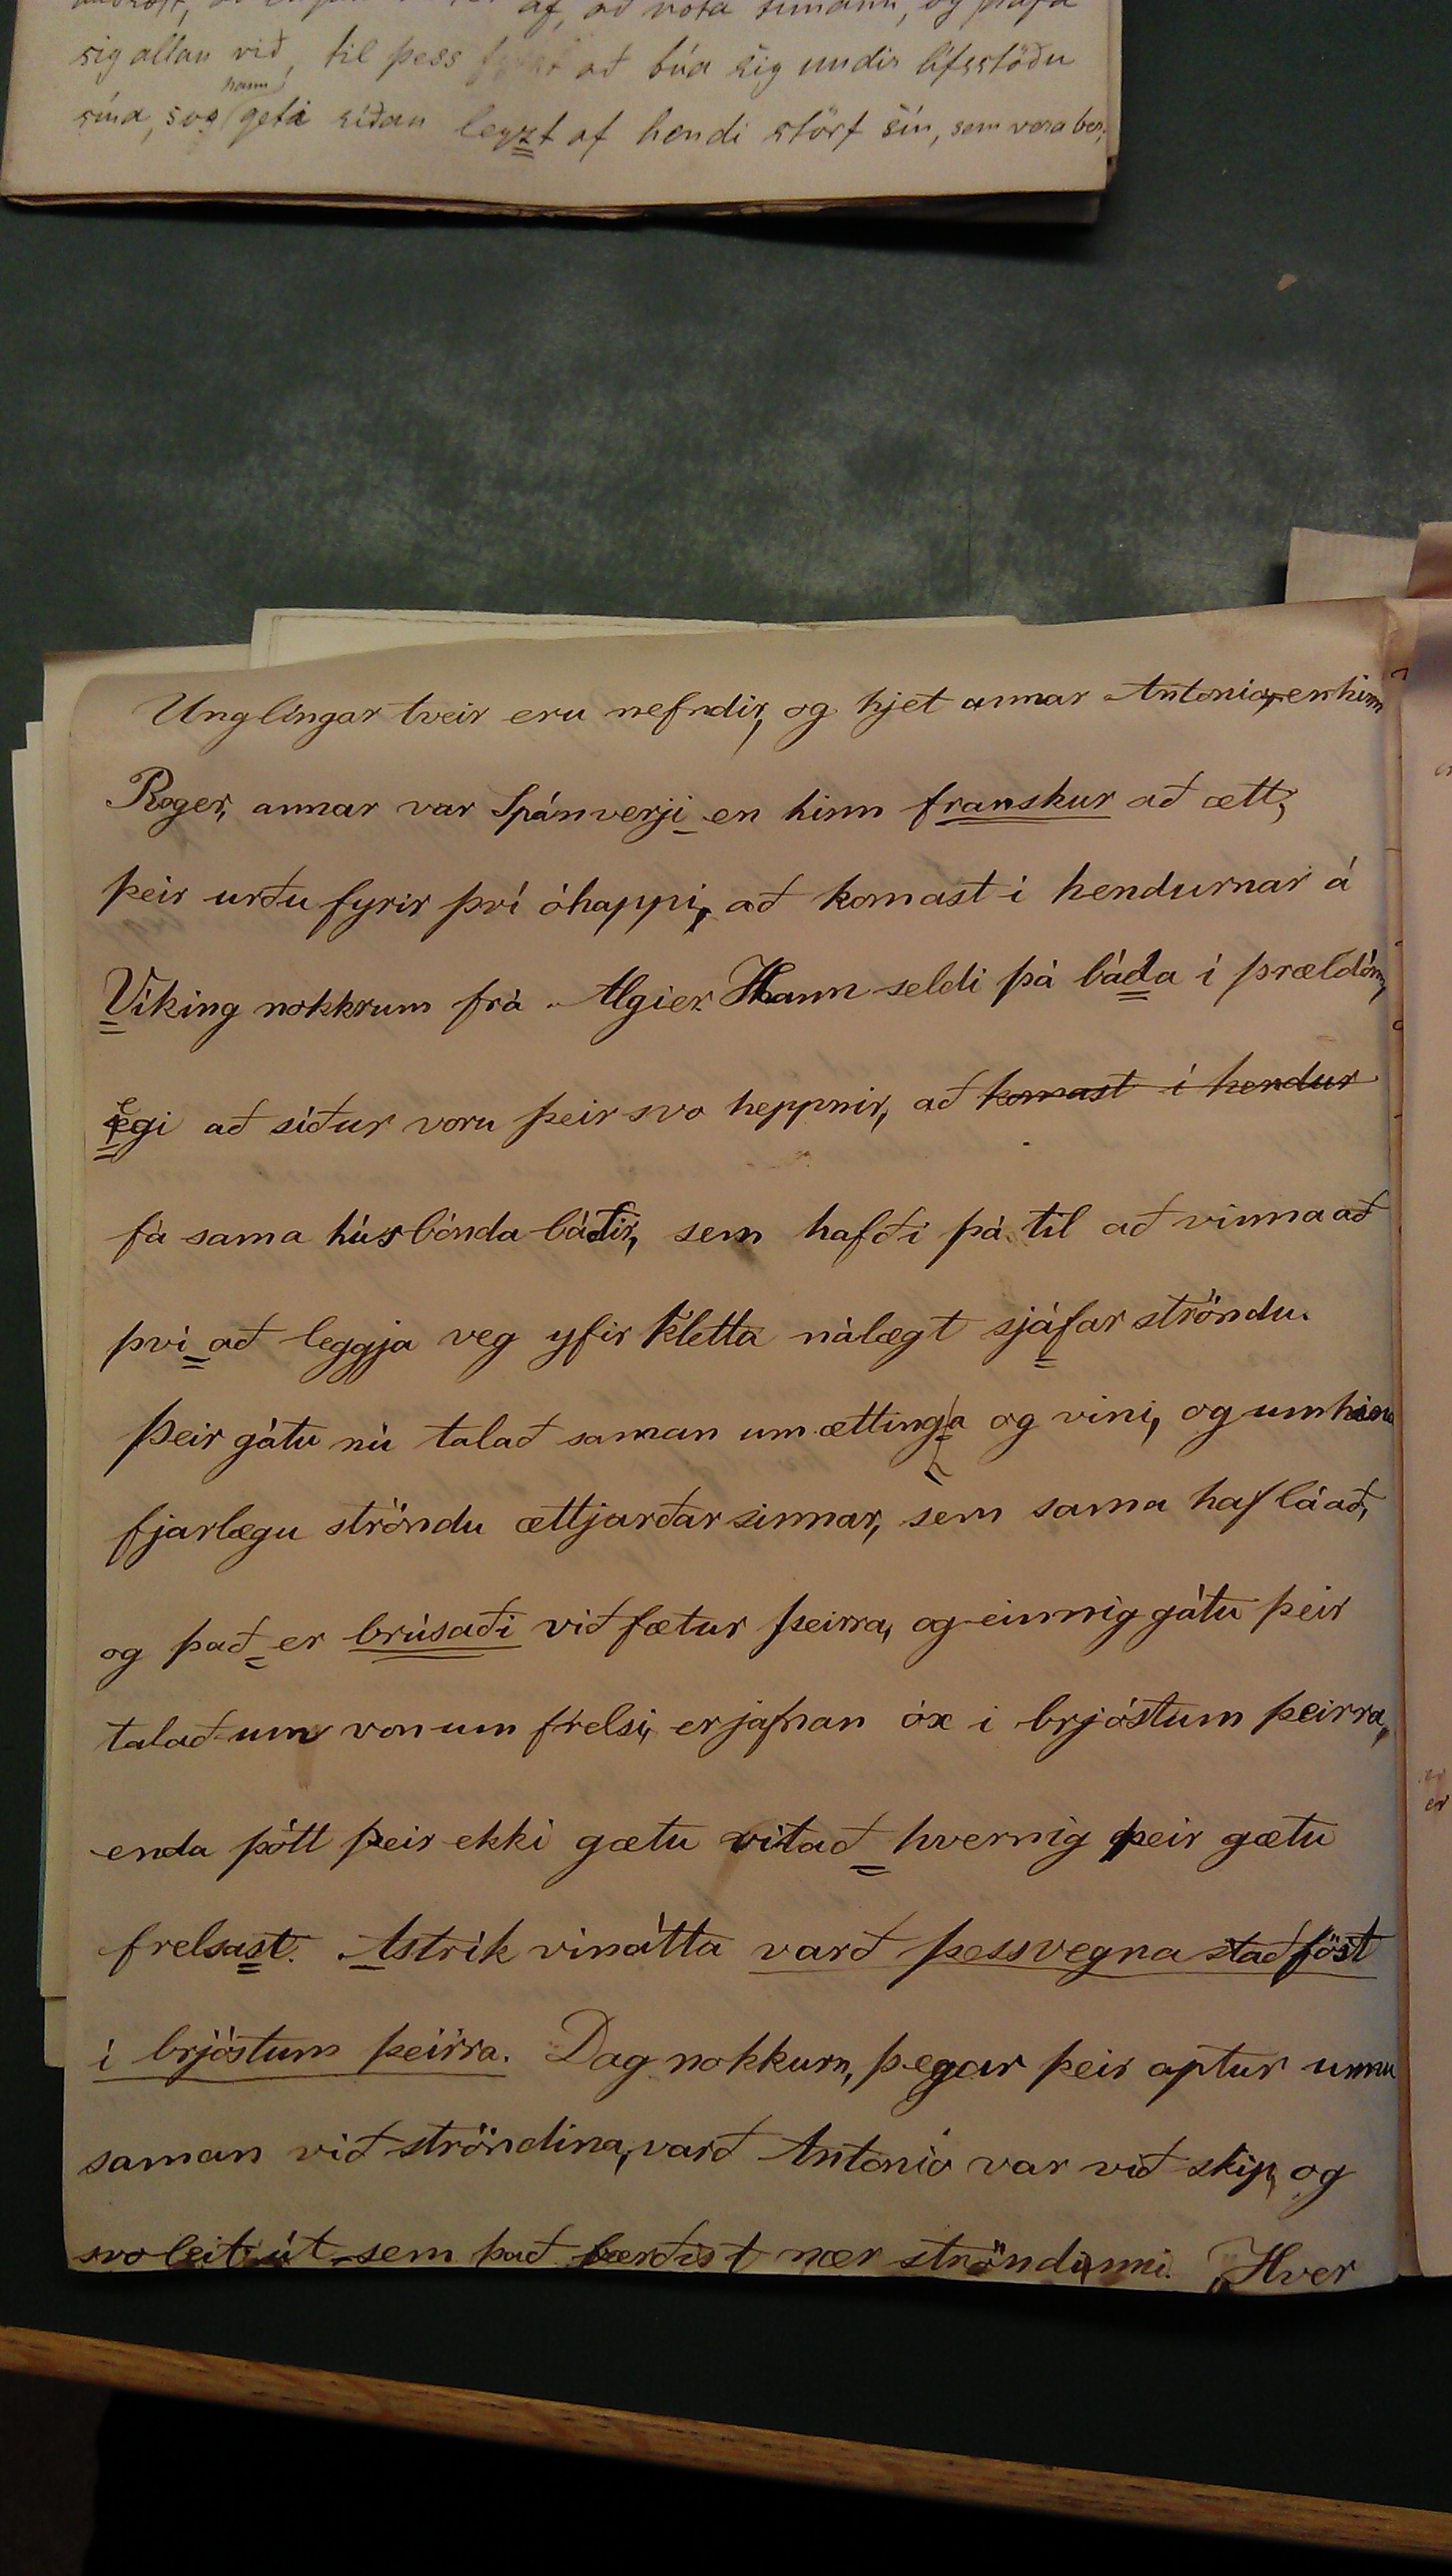 af, að nota tímann, og
sig allan við, til þess að búa sig undir lífsstöðu
hann
sína, svo geta síðan leyzt af hendi störf sín, sem vera ber,
Unglíngar tveir eru nefndir, og hjet annar Antonio, en hinn
Roger, annar var Spánverji en hinn franskur að ætt,
þeir urðu fyrir því óhappi, að komast í hendurnar á
Víking nokkrum frá Algier. Hann seldi þá báda í þrældóm,
Egi að síður voru þeir svo heppnir, að komast í hendur
fá sama húsbónda báðir, sem hafði þá til að vinna að
því að leggja veg yfir kletta nálægt sjáfar ströndu.
Þeir gátu nú talað saman um ættinga og vini, og um hina
fjarlægu ströndu ættjarðar sinnar, sem sama haf lá að,
og það er brúsaði við fætur þeirra, og einnig gátu þeir
talað um von um frelsi, er jafnan óx í brjóstum þeirra,
enda þótt þeir ekki gætu vitað hvernig þeir gætu
frelsast. Astrík vinátta varð þessvegna staðföst
í brjóstum þeirra. Dag nokkurn, þegar þeir aptur unnu
saman við ströndina, varð Antonio var við skip, og
svo leit út sem það færðist nær ströndinni. „Hver